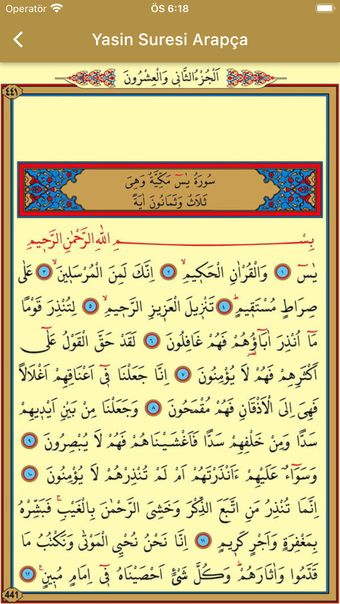 Operatör ÖS 6:18
Yasin Suresi Arapça
اَلْجُزْءُ الثَّانِى وَالْعِشْرُونَ
٤٤١
سُورَةُ يٰسٓ مَكِّيَّةٌ وَهِىَ
ثَلَاثٌ وَثَمَانُونَ اٰيَةً
بِسْمِ اللّٰهِ الرَّحْمٰنِ الرَّحٖيمِ
يٰسٓ ١ وَالْقُرْاٰنِ الْحَكٖيمِۙ ٢ اِنَّكَ لَمِنَ الْمُرْسَلٖينَۙ ٣ عَلٰى
صِرَاطٍ مُسْتَقٖيمٍۜ ٤ تَنْزٖيلَ الْعَزٖيزِ الرَّحٖيمِۙ ٥ لِتُنْذِرَ قَوْمًا
مَٓا اُنْذِرَ اٰبَٓاؤُ۬هُمْ فَهُمْ غَافِلُونَ ٦ لَقَدْ حَقَّ الْقَوْلُ عَلٰٓى
اَكْثَرِهِمْ فَهُمْ لَا يُؤْمِنُونَ ٧ اِنَّا جَعَلْنَا فٖٓى اَعْنَاقِهِمْ اَغْلَالًا
فَهِىَ اِلَى الْاَذْقَانِ فَهُمْ مُقْمَحُونَ ٨ وَجَعَلْنَا مِنْ بَيْنِ اَيْدٖيهِمْ
سَدًّا وَمِنْ خَلْفِهِمْ سَدًّا فَاَغْشَيْنَاهُمْ فَهُمْ لَا يُبْصِرُونَ ٩
وَسَوَٓاءٌ عَلَيْهِمْ ءَاَنْذَرْتَهُمْ اَمْ لَمْ تُنْذِرْهُمْ لَا يُؤْمِنُونَ ١٠
اِنَّمَا تُنْذِرُ مَنِ اتَّبَعَ الذِّكْرَ وَخَشِىَ الرَّحْمٰنَ بِالْغَيْبِۚ فَبَشِّرْهُ
بِمَغْفِرَةٍ وَاَجْرٍ كَرٖيمٍ ١١ اِنَّا نَحْنُ نُحْيِ الْمَوْتٰى وَنَكْتُبُ مَا
قَدَّمُوا وَاٰثَارَهُمْۜ وَكُلَّ شَىْءٍ اَحْصَيْنَاهُ فٖٓى اِمَامٍ مُبٖينٍ ١٢
441